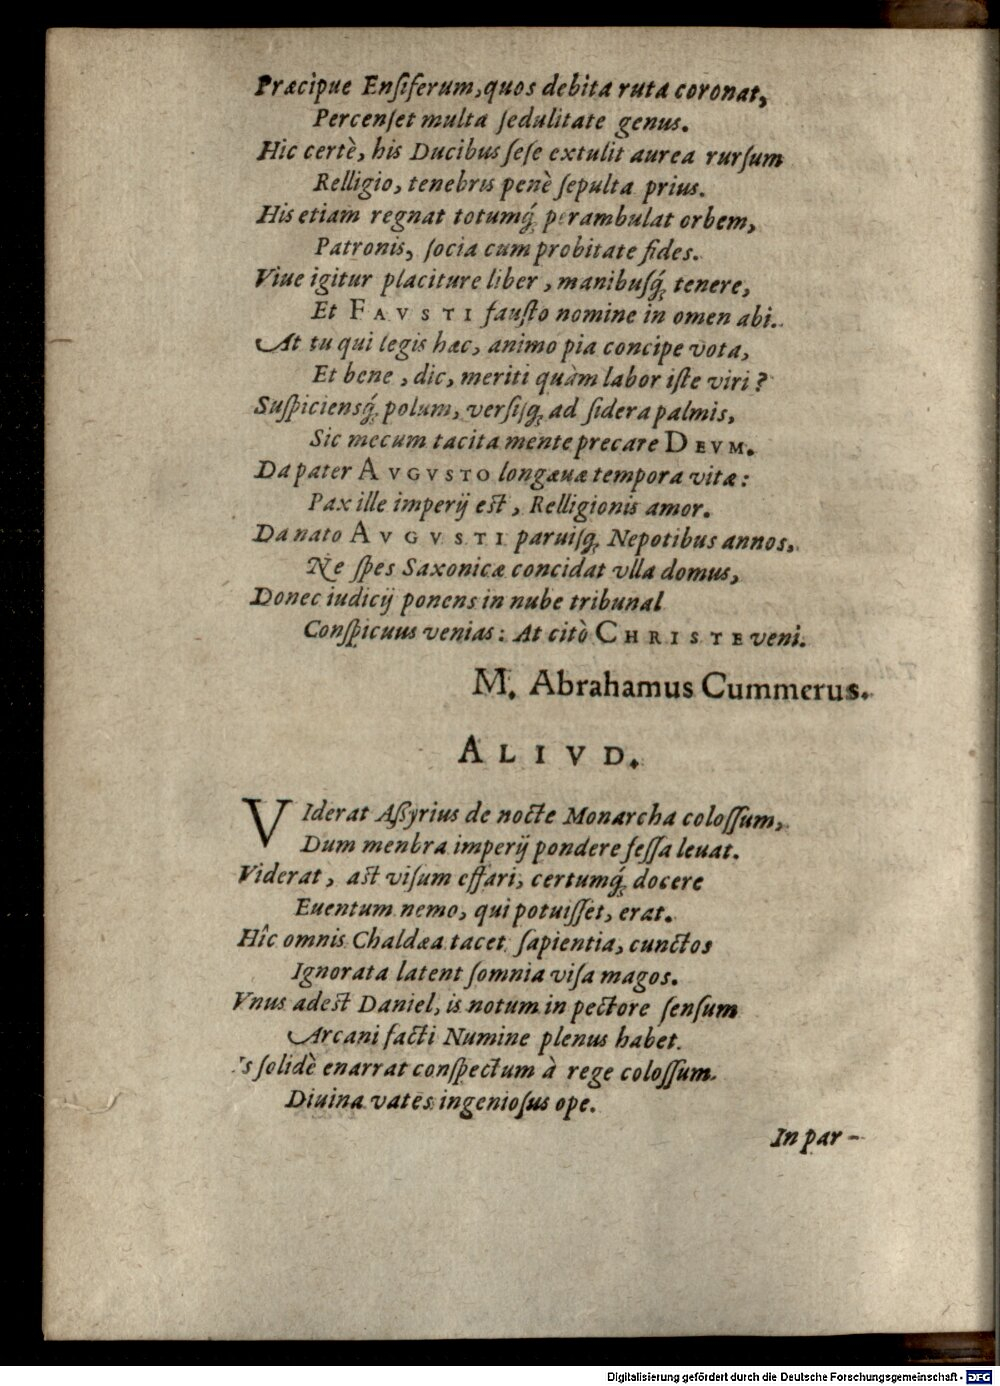 Præcipue Enſiferum, quos debita ruta coronat,
Percenſet multa ſedulitate genus.
Hic certè, his Ducibus ſeſe extulit aurea rurſum
Relligio, tenebris penè ſepulta prius.
His etiam regnat totumq́; perambulat orbem,
Patronis, ſocia cum probitate fides.
Viue igitur placiture liber, manibuſq́; tenere,
Et FAVSTI fauſto nomine in omen abi.
At tu qui legis hæc, animo pia concipe vota,
Et bene, dic, meriti quàm labor iſte viri?
Suſpiciensq́; polum, verſiſq; ad ſidera palmis,
Sic mecum tacita mente precare DEVM.
Da pater AVGVSTO longæuæ tempora vitæ:
Pax ille imperij eſt, Relligionis amor.
Da nato AVGVSTI paruiſq; Nepotibus annos,
Ne ſpes Saxonicæ concidat vlla domus,
Donec iudicij ponens in nube tribunal
Conſpicuus venias: At citò CHRISTE veni.
M. Abrahamus Cummerus.
ALIVD.
VIderat Aßyrius de nocte Monarcha coloſſum,
Dum menbra imperij pondere feſſa leuat.
Viderat, aſt viſum effari, certumq́; docere
Euentum nemo, qui potuiſſet, erat.
Hîc omnis Chaldæa tacet ſapientia, cunctos
Ignorata latent ſomnia viſa magos.
Vnus adeſt Daniel, is notum in pectore ſenſum
Arcani facti Numine plenus habet.
Is ſolidè enarrat conſpectum à rege coloſſum.
Diuina vates ingenioſus ope.
In par-
Digitalisierung gefördert durch die Deutsche Forschungsgemeinschaft - DFG